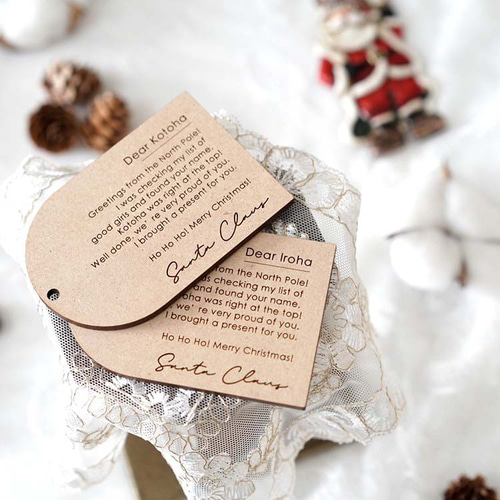 Dear Kotoha
Greetings from the North Pole!
I was checking my list of
good girls and found your name.
Kotoha was right at the top!
Well done, we' re very proud of you.
I brought a present for you.
Ho Ho Ho! Merry Christmas!
Santa Claus
Dear Iroha
from the North Pole!
was checking my list of
and found your name.
was right at the top!
we' re very proud of you.
I brought a present for you.
Ho Ho Ho! Merry Christmas!
Santa Claus